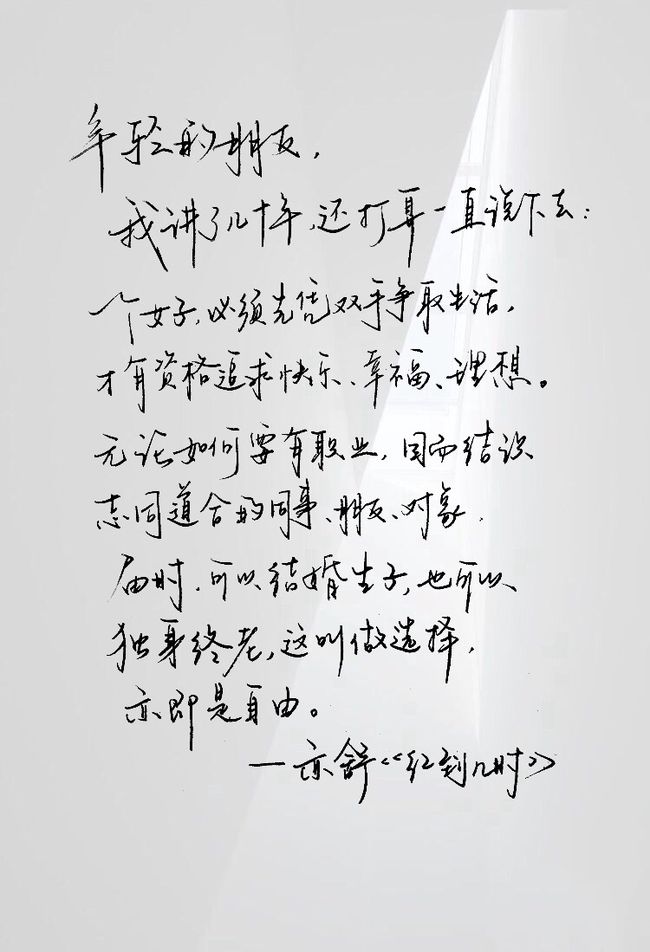 年轻的朋友，
我讲了几十年，还打算一直说下去：
个女子，必须先凭双手争取生活，
才有资格追求快乐、幸福、理想。
无论如何要有职业，因而结识
志同道合的同事、朋友、对象，
届时，可以结婚生子，也可以
独身终老，这叫做选择，
亦即是自由。
—亦舒《红到几时》